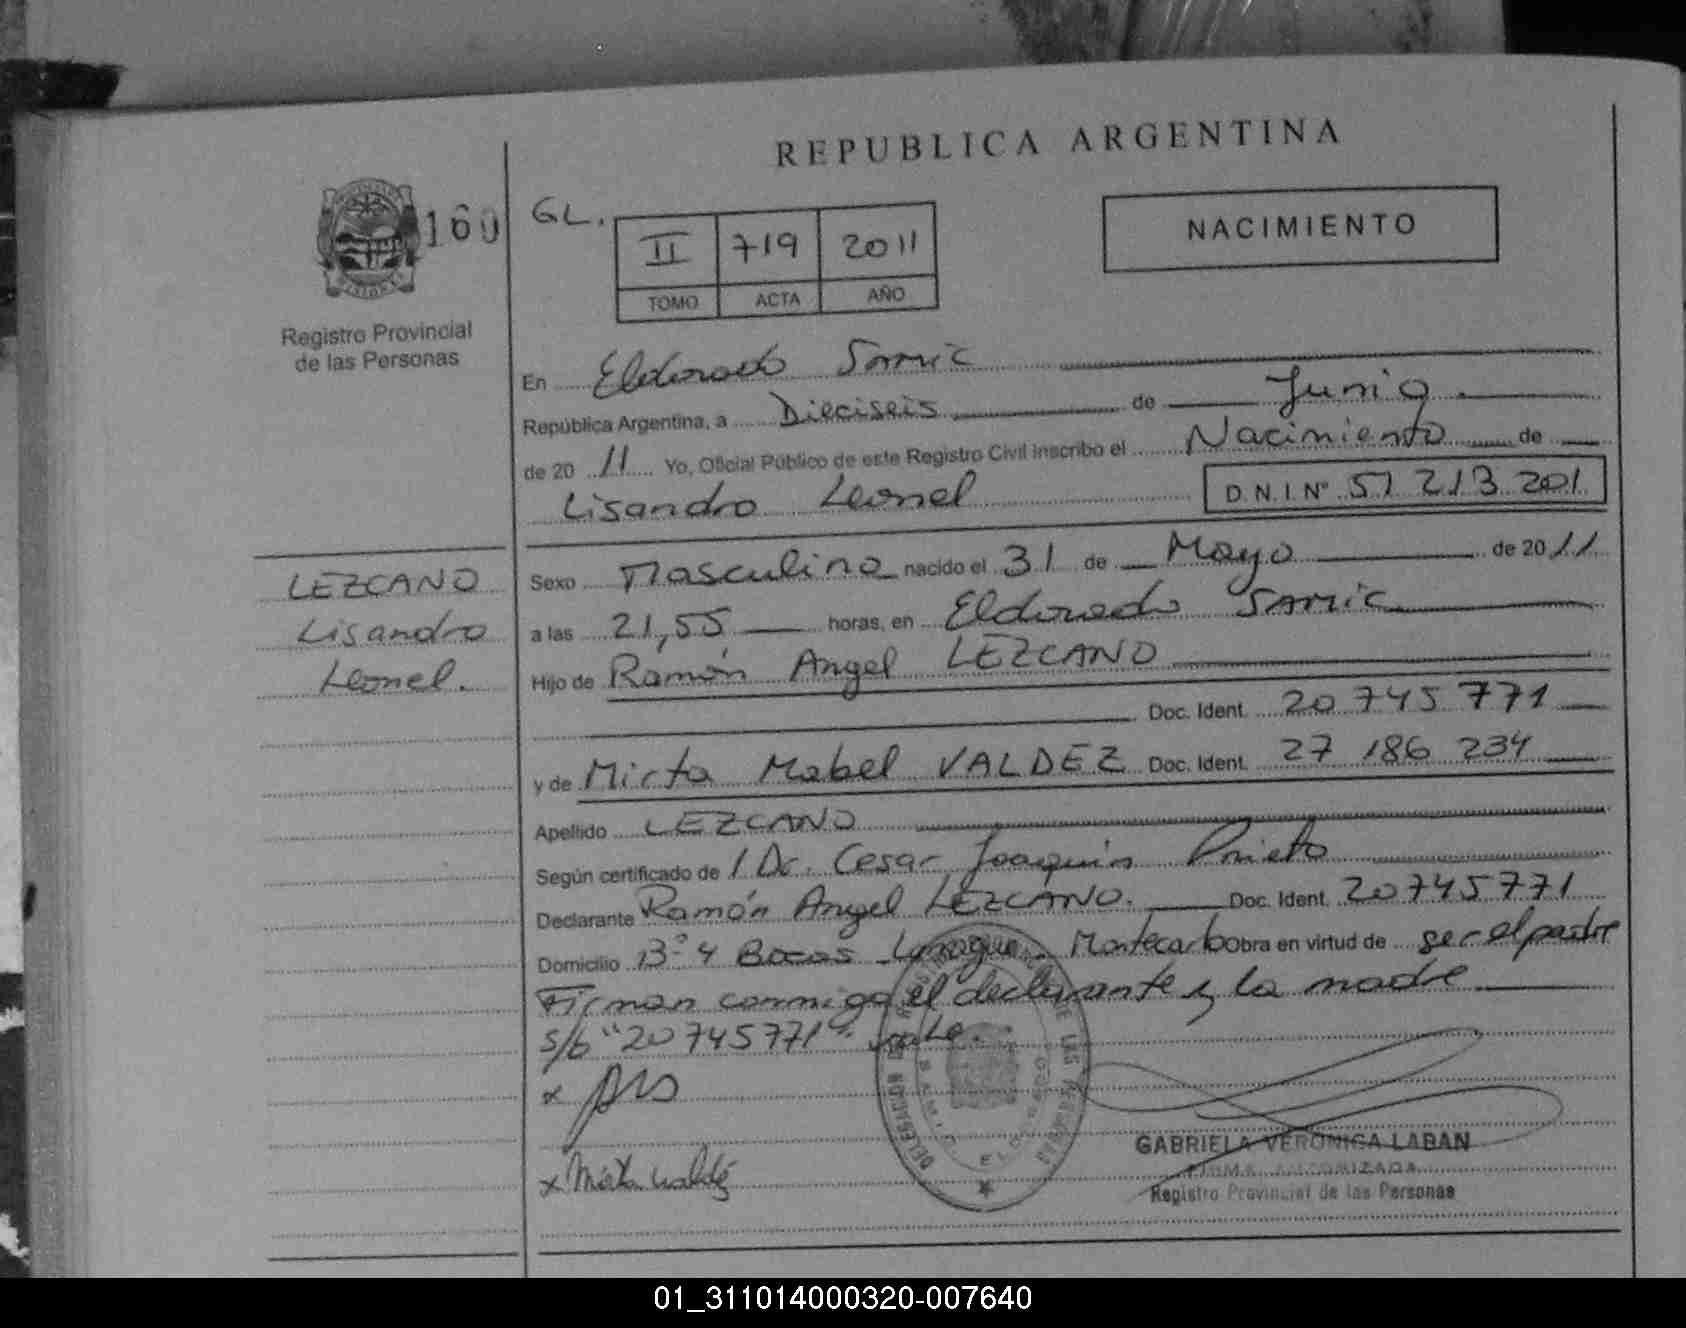 REPUBLICA ARGENTINA
160
GL.
II 719 2011
TOMO ACTA AÑO
NACIMIENTO
Registro Provincial
de las Personas
En Eldorado Samic
República Argentina, a Dieciseis de Junio
de 20 11 Yo, Oficial Público de este Registro Civil inscribo el Nacimiento de
Lisandro Leonel D.N.I.Nº 51 213 201
LEZCANO
Lisandro
Leonel.
Sexo Masculino nacido el 31 de Mayo de 2011
a las 21,55 horas, en Eldorado Samic
Hijo de Ramón Angel LEZCANO
Doc. Ident. 20 745 771
y de Mirta Mabel VALDEZ Doc. Ident. 27 186 234
Apellido LEZCANO
Según certificado de l Dr. Cesar Joaquin Prieto
Declarante Ramón Angel LEZCANO. Doc. Ident. 20745771
Domicilio Bº 4 Bocas Montecarlo obra en virtud de ser el padre
Firman conmigo el declarante y la madre
s/b "20745771" vale.
x
x Mirta Valdéz
GABRIELA VERONICA LABAN
FIRMA AUTORIZADA
Registro Provincial de las Personas
01_311014000320-007640